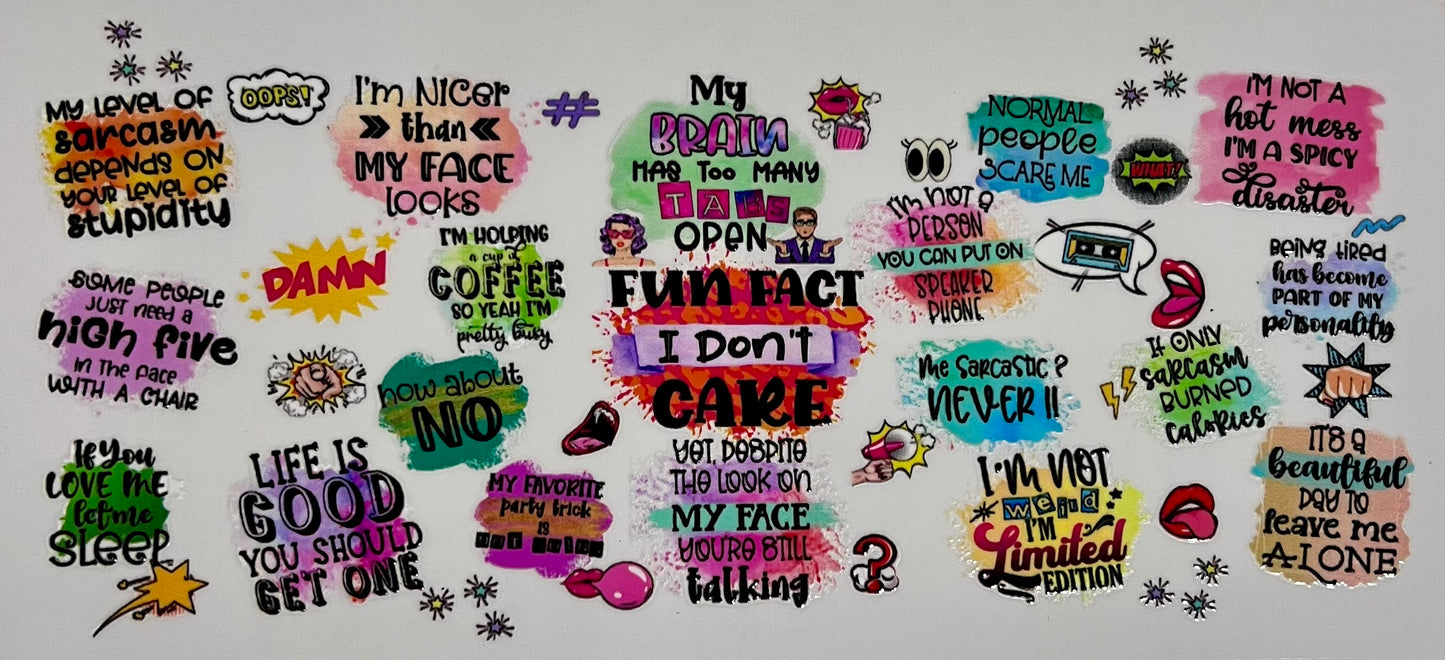 MY LEVEL OF
sarcasm
DEPENDS ON
YOUR LEVEL OF
stupidity
OOPS!
I'm NICER
than
MY FACE
looks
#
My
BRAIN
HAS TOO MANY
TABS
OPEN
NORMAL
people
SCARE ME
WHAT?
I'M NOT A
hot mess
I'M A SPICY
disaster
SOME PEOPLE
JUST NEED A
HIGH FIVE
IN THE FACE
WITH A CHAIR
DAMN
I'M HOLDING
a cup of
COFFEE
SO YEAH I'M
pretty busy
FUN FACT
I Don't
CARE
I'M NOT A
PERSON
YOU CAN PUT ON
SPEAKER
PHONE
BEING tired
has become
PART OF MY
personality
how about
NO
Me Sarcastic?
NEVER!!
IF ONLY
SARCASM
BURNED
Calories
If You
LOVE ME
let me
SLEEP
LIFE IS
GOOD
YOU SHOULD
GET ONE
MY FAVORITE
party trick
IS
not going
YET, DESPITE
THE LOOK ON
MY FACE
YOU'RE STILL
talking
?
I'M NOT
weird
I'M
Limited
EDITION
IT'S A
beautiful
DAY TO
leave me
ALONE